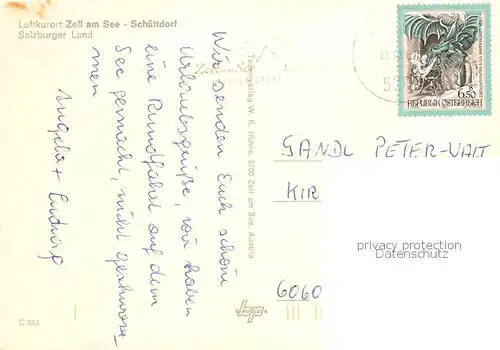 Luftkurort Zell am See - Schüttdorf
Salzburger Land
Wir senden Euch schöne
Urlaubsgrüße, wir haben
eine Rundfahrt auf dem
See gemacht, nicht geschwom
men
Angela + Ludwig
C 553
W. K. Hühne, 5700 Zell am See, Austria
Zell am See
6.50
REPUBLIK ÖSTERREICH
SANDL PETER-WALT
KIR
6060
privacy protection
Datenschutz